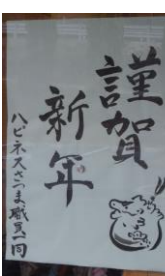 謹賀
新年
ハピネスさつま職員一同